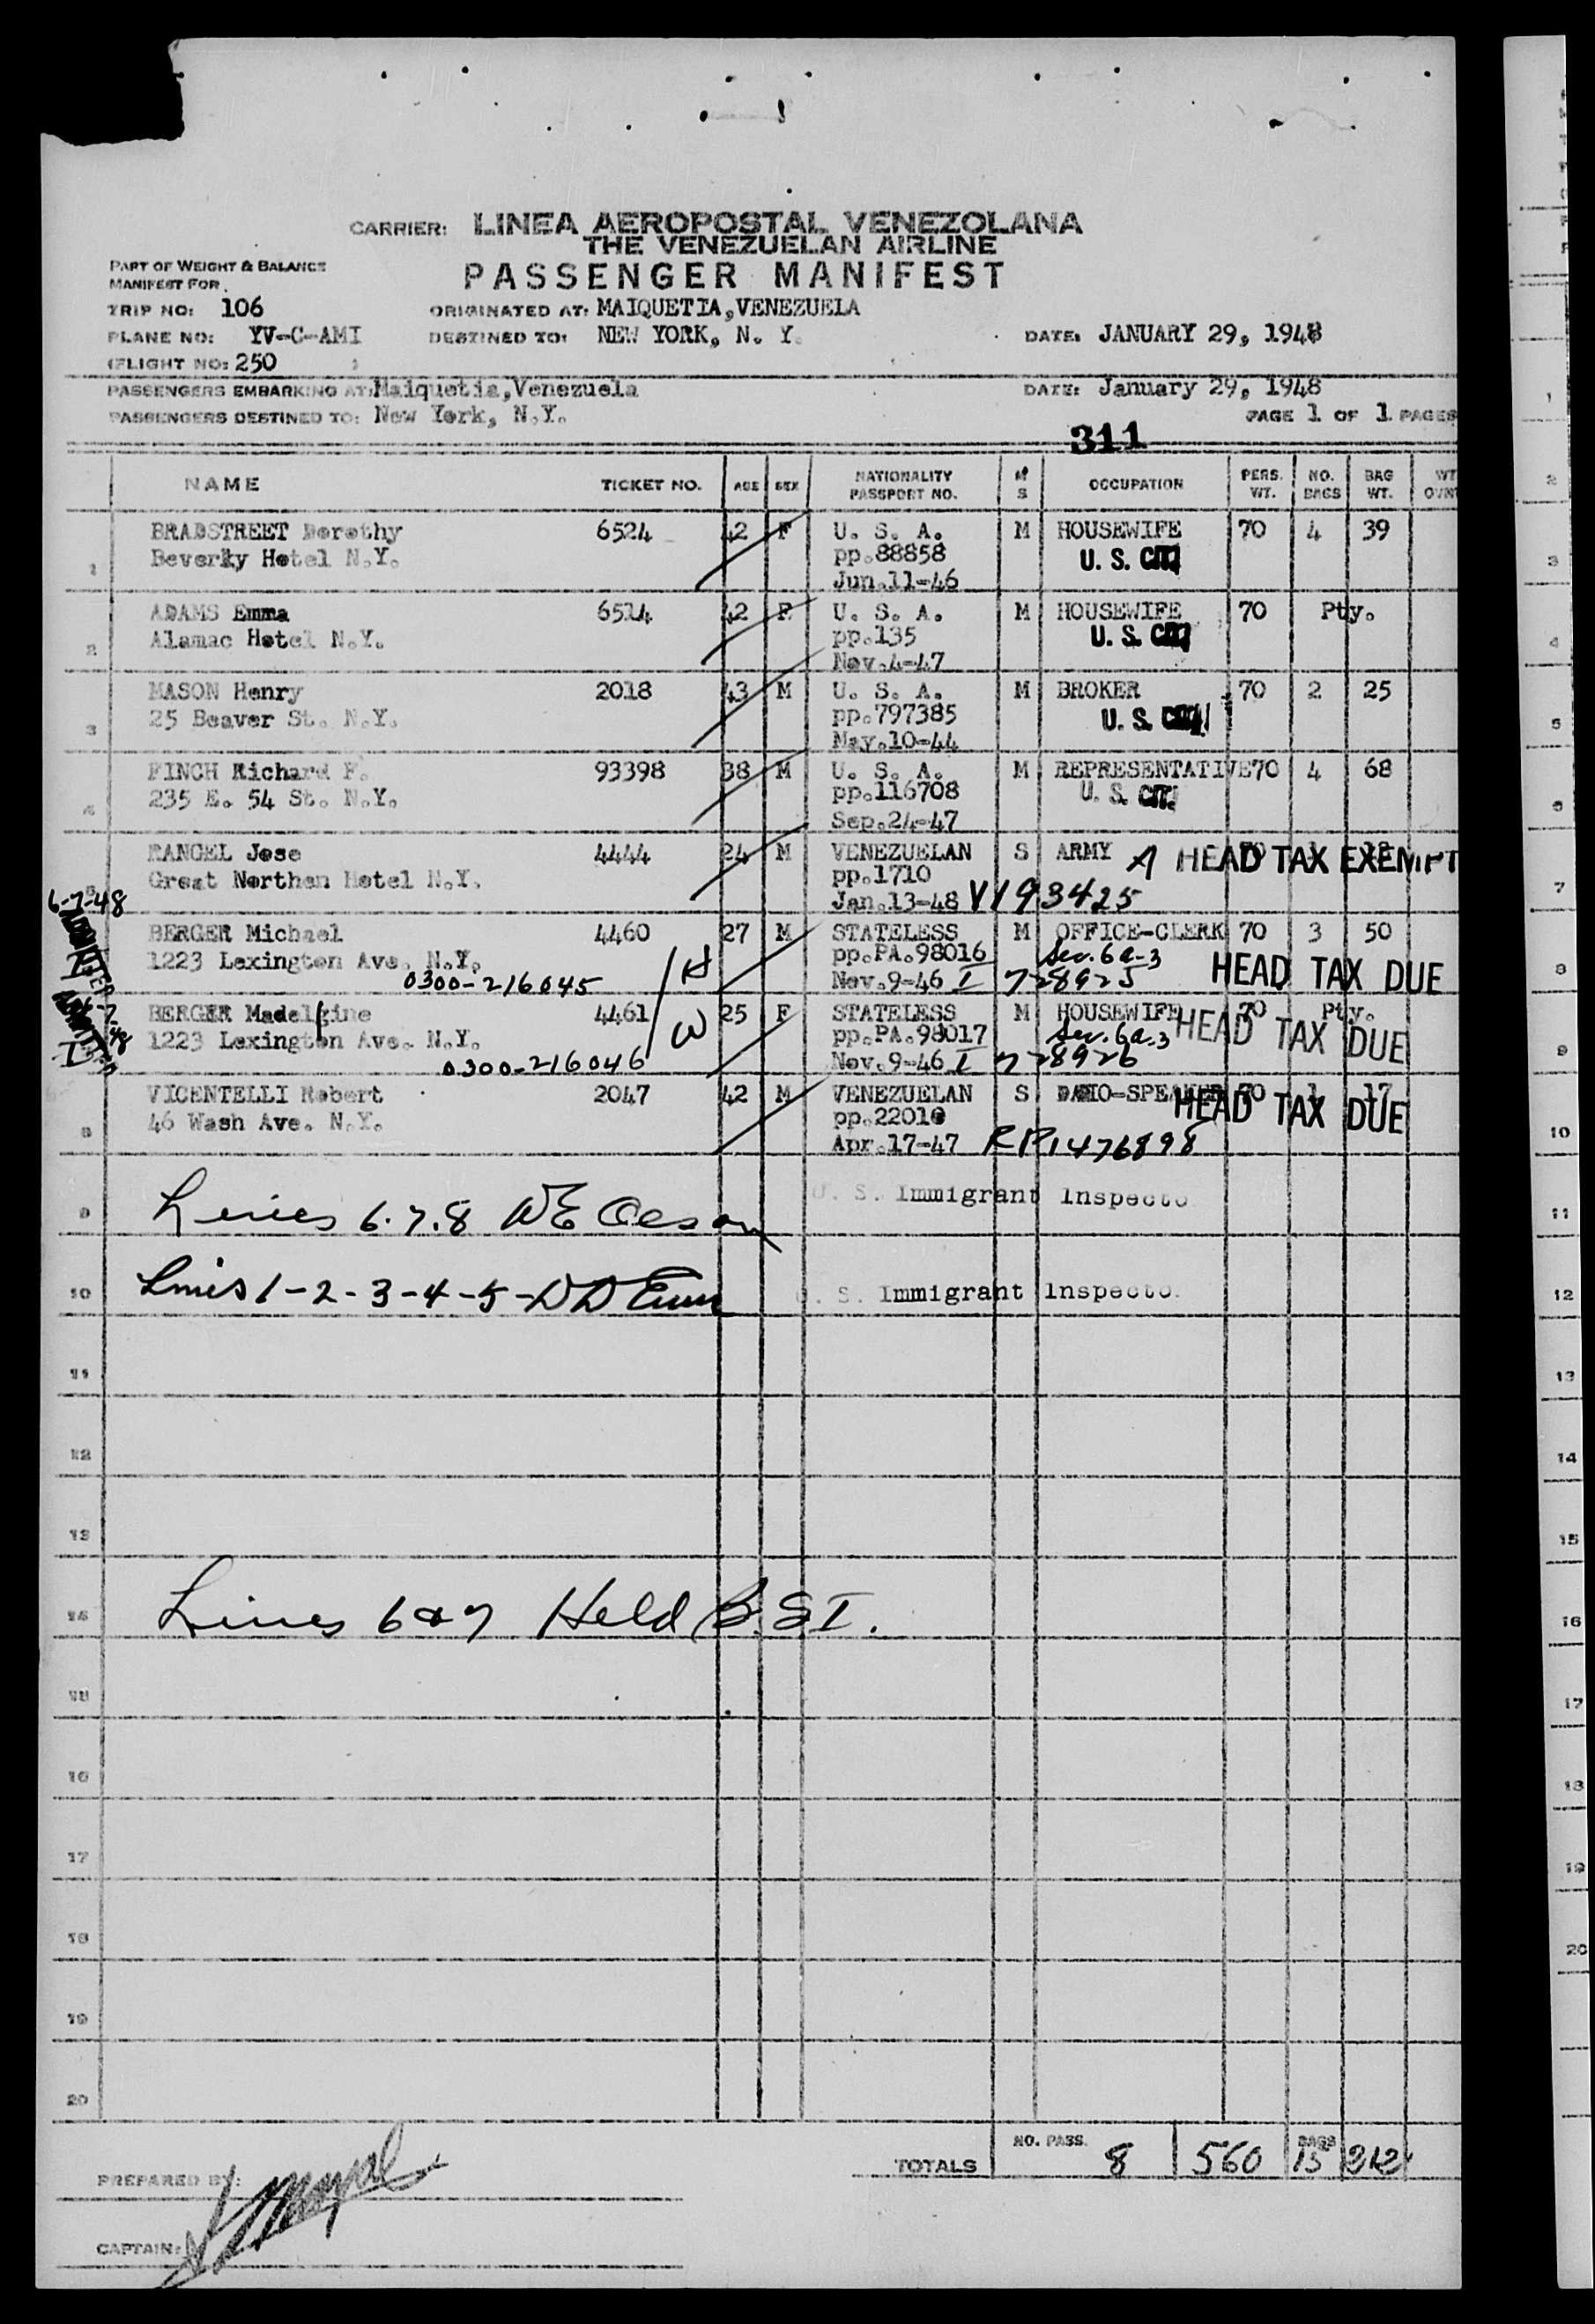 CARRIER: LINEA AEROPOSTAL VENEZOLANA
THE VENEZUELAN AIRLINE
PART OF WEIGHT & BALANCE
MANIFEST FOR
PASSENGER MANIFEST
TRIP NO: 106 ORIGINATED AT: MAIQUETIA, VENEZUELA
PLANE NO: YV-C-AMI DESTINED TO: NEW YORK, N. Y. DATE: JANUARY 29, 1948
(FLIGHT NO: 250 )
PASSENGERS EMBARKING AT: Maiquetia, Venezuela DATE: January 29, 1948
PASSENGERS DESTINED TO: New York, N.Y. PAGE 1 OF 1 PAGES
311
NAME TICKET NO. AGE SEX NATIONALITY PASSPORT NO. M S OCCUPATION PERS. WT. NO. BAGS BAG WT.
BRADSTREET Dorothy 6524 42 F U. S. A. M HOUSEWIFE 70 4 39
1 Beverky Hotel N.Y. pp.88858 U. S. CIT.
Jun.11-46
ADAMS Emma 6514 42 F U. S. A. M HOUSEWIFE 70 Pty.
2 Alamac Hotel N.Y. pp.135 U. S. CIT.
Nov.4-47
MASON Henry 2018 43 M U. S. A. M BROKER 70 2 25
3 25 Beaver St. N.Y. pp.797385 U. S. CIT.
May.10-44
FINCH Richard F. 93398 38 M U. S. A. M REPRESENTATIVE 70 4 68
4 235 E. 54 St. N.Y. pp.116708 U. S. CIT.
Sep.24-47
RANGEL Jose 4444 24 M VENEZUELAN S ARMY A HEAD TAX EXEMPT
5 Great Northen Hotel N.Y. pp.1710
Jan.13-48 V193425
6-7-48
BERGER Michael 4460 27 M STATELESS M OFFICE-CLERK 70 3 50
1223 Lexington Ave. N.Y. H pp.PA.98016 Sec. 6a-3 HEAD TAX DUE
0300-216045 Nov.9-46 I 728925
BERGER Madelgine 4461 W 25 F STATELESS M HOUSEWIFE 70 Pty.
1223 Lexington Ave. N.Y. pp.PA.98017 Sec. 6a.3 HEAD TAX DUE
0300-216046 Nov.9-46 I 728926
VICENTELLI Robert 2047 42 M VENEZUELAN S RADIO-SPEAKER 70 1 17
8 46 Wash Ave. N.Y. pp.22010 HEAD TAX DUE
Apr.17-47 RP1476898
9 Lines 6.7.8 U. S. Immigrant Inspecto
10 Lines 1-2-3-4-5- U. S. Immigrant Inspecto
11
12
13
14 Lines 6 & 7 Held B.S.I.
15
16
17
18
19
20
TOTALS NO. PASS. 8 560 BAGS 15 212
PREPARED BY:
CAPTAIN: